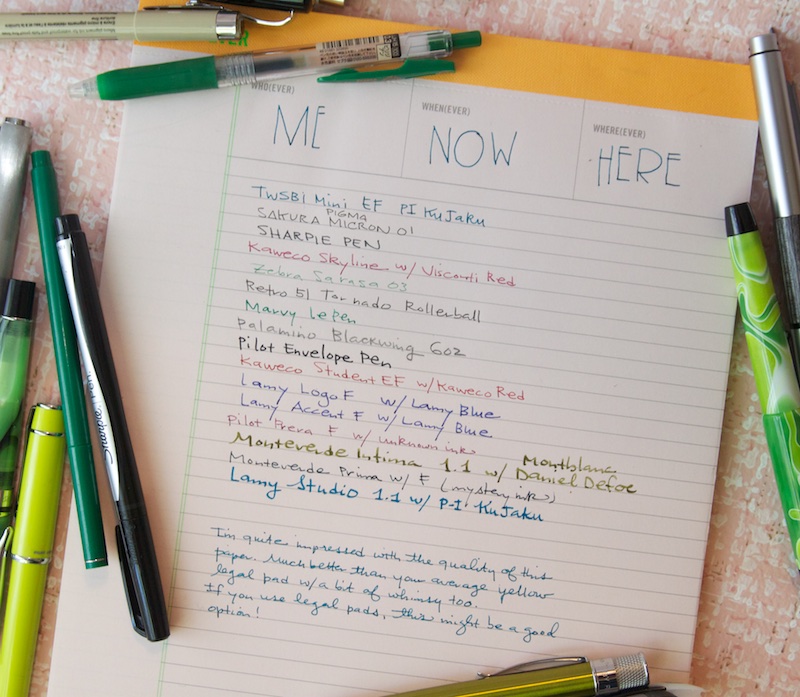 WHO(EVER)
ME
WHEN(EVER)
NOW
WHERE(EVER)
HERE
TWSBI Mini EF PI Kujaku
SAKURA PIGMA MICRON 01
SHARPIE PEN
Kaweco Skyline w/ Visconti Red
Zebra Sarasa 03
Retro 51 Tornado Rollerball
Marvy Le Pen
Palamino Blackwing 602
Pilot Envelope Pen
Kaweco Student EF w/ Kaweco Red
Lamy Logo F w/ Lamy Blue
Lamy Accent F w/ Lamy Blue
Pilot Prera F w/ unknown ink
Monteverde Intima 1.1 w/ Montblanc Daniel Defoe
Monteverde Prima w/ F (mystery ink)
Lamy Studio 1.1 w/ P-I Kujaku
I'm quite impressed with the quality of this
paper. Much better than your average yellow
legal pad w/ a bit of whimsy too.
If you use legal pads, this might be a good
option!
Sharpie Pen